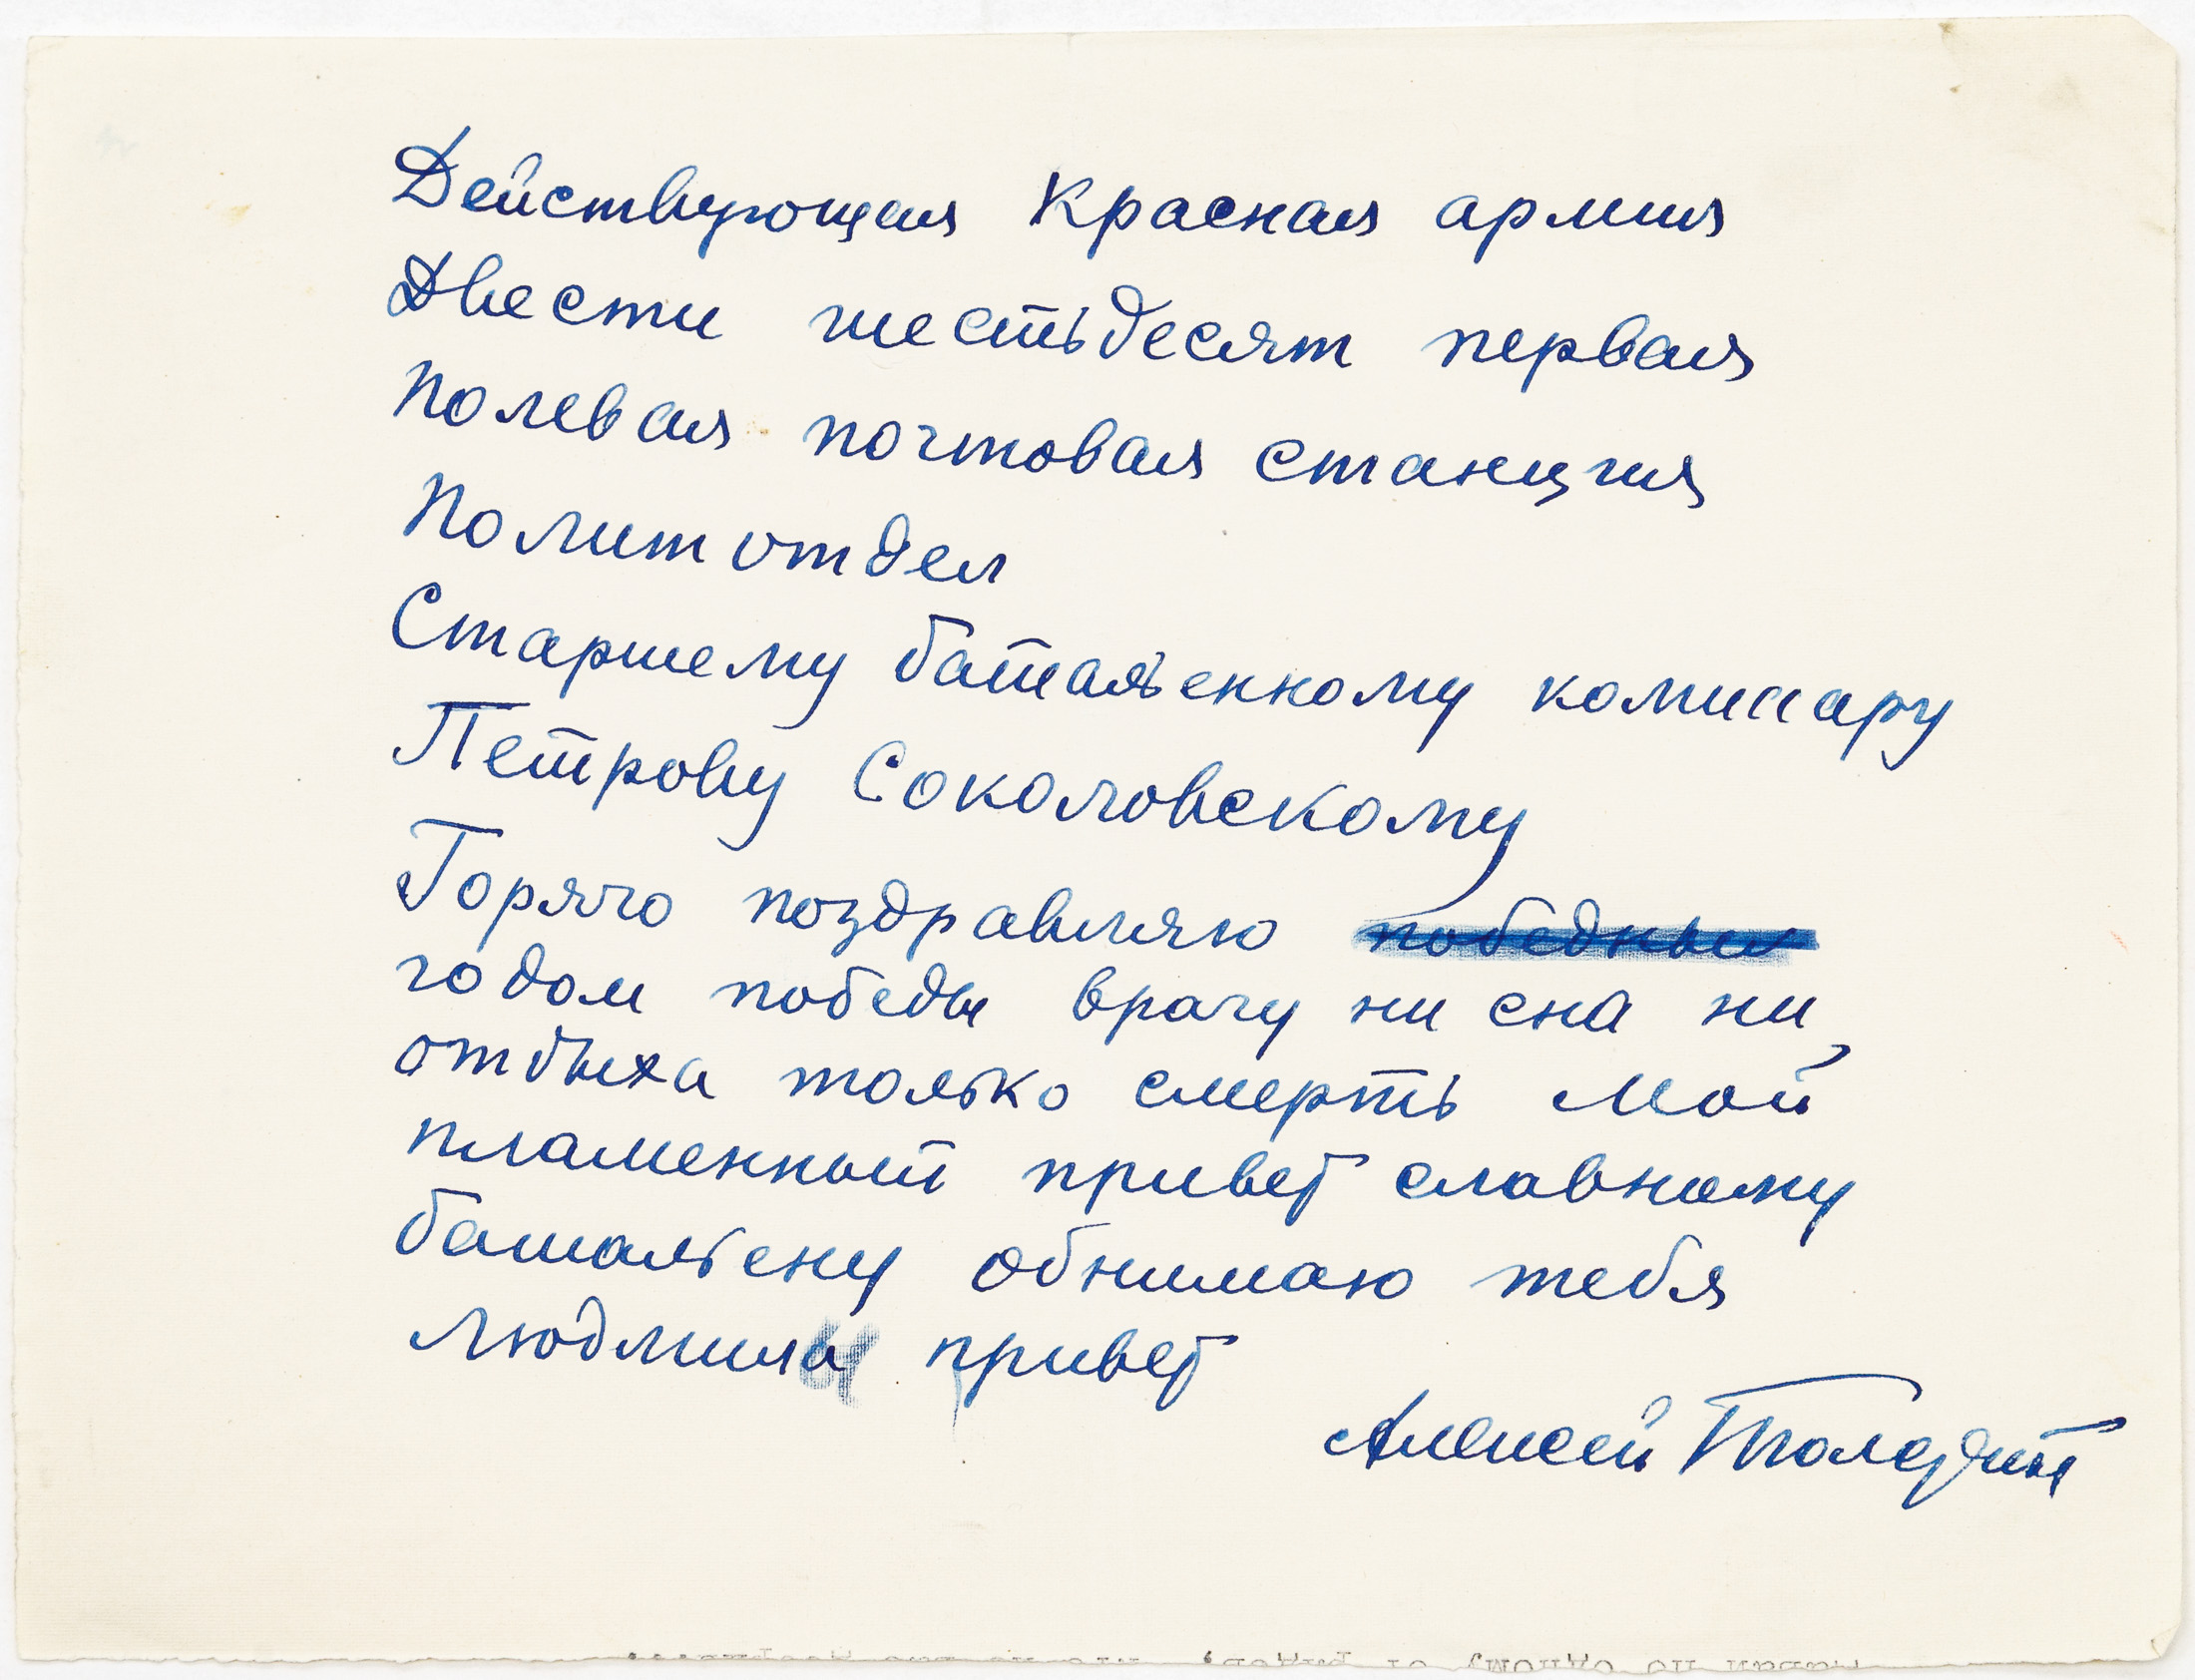 Действующая Красная армия
Двести шестьдесят первая
Полевая почтовая станция
Политотдел
Старшему батальенному комиссару
Петрову Соколовскому
Горячо поздравляю победным
годом победы врагу ни сна ни
отдыха только смерть Мой
пламенный привет славному
батальену обнимаю тебя
Людмила привет
Алексей Толстой